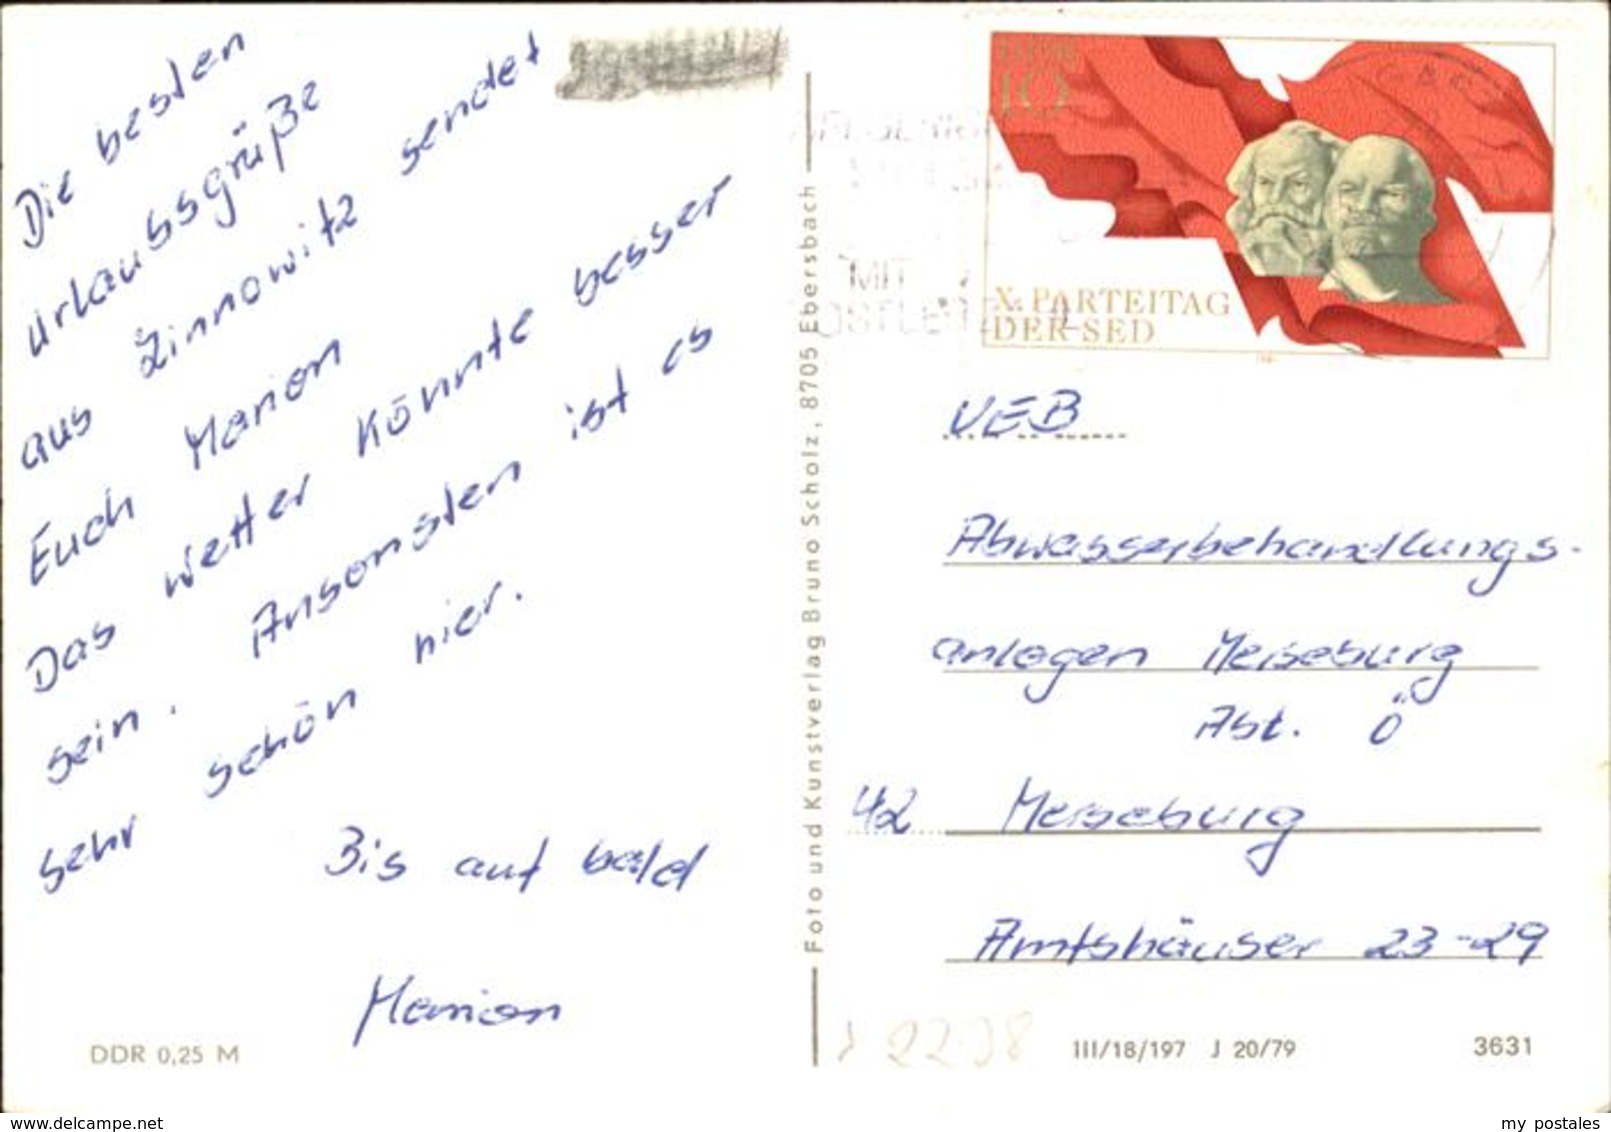 Die besten
Urlaubsgrüße
aus Zinnowitz sendet
Euch Marion
Das Wetter könnte besser
sein. Ansonsten ist es
sehr schön hier.
Bis auf bald
Marion
DDR 0,25 M
Foto und Kunstverlag Bruno Scholz, 8705 Ebersbach
DDR
10
X. PARTEITAG
DER SED
MIT
VEB
Abwasserbehandlungs-
anlagen Merseburg
Abt. Ö
42 Merseburg
Amtshäuser 23-29
III/18/197 J 20/79 3631
www.delcampe.net
my_postales